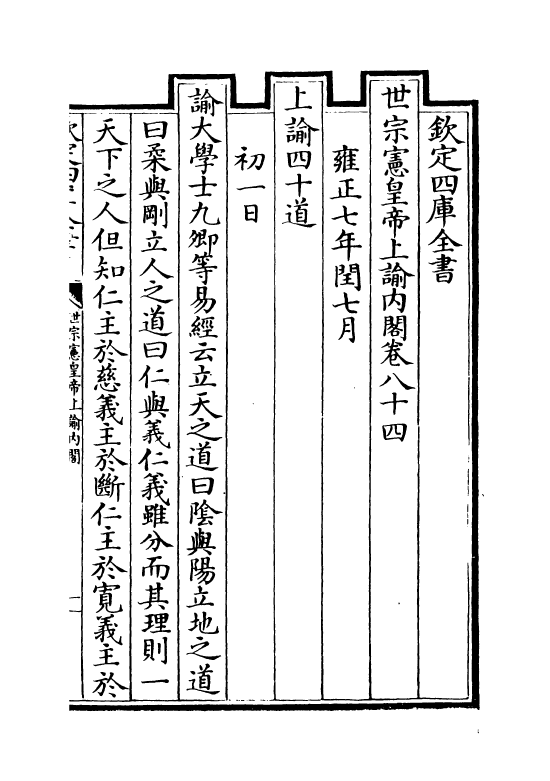 欽定四庫全書
世宗憲皇帝上諭內閣卷八十四
雍正七年閏七月
上諭四十道
初一日
諭大學士九卿等易經云立天之道曰陰與陽立地之道
曰柔與剛立人之道曰仁與義仁義雖分而其理則一
天下之人但知仁主於慈義主於斷仁主於寛義主於
世宗憲皇帝上諭內閣
一